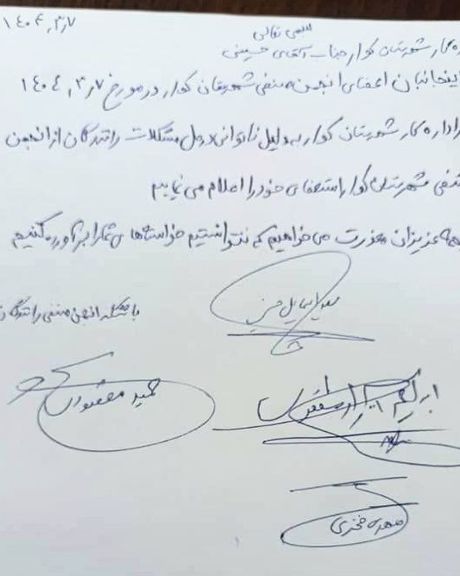 ۱۴۰۴,۳,۷
بسمه تعالی
اداره کار شهرستان کوار جناب آقای حسینی
اینجانبان اعضای انجمن صنفی شهرستان کوار در مورخ ۱۴۰۴,۳,۷
اداره کار شهرستان کوار به دلیل ناتوانی در حل مشکلات رانندگان از انجمن
صنفی شهرستان کوار استعفای خود را اعلام می نماییم
همه عزیزان معذرت می خواهیم که نتوانستیم خواسته های شما را برآورده کنیم
با تشکر انجمن صنفی رانندگان
حمید مقصودی
ابراهیم
مهدی فخری